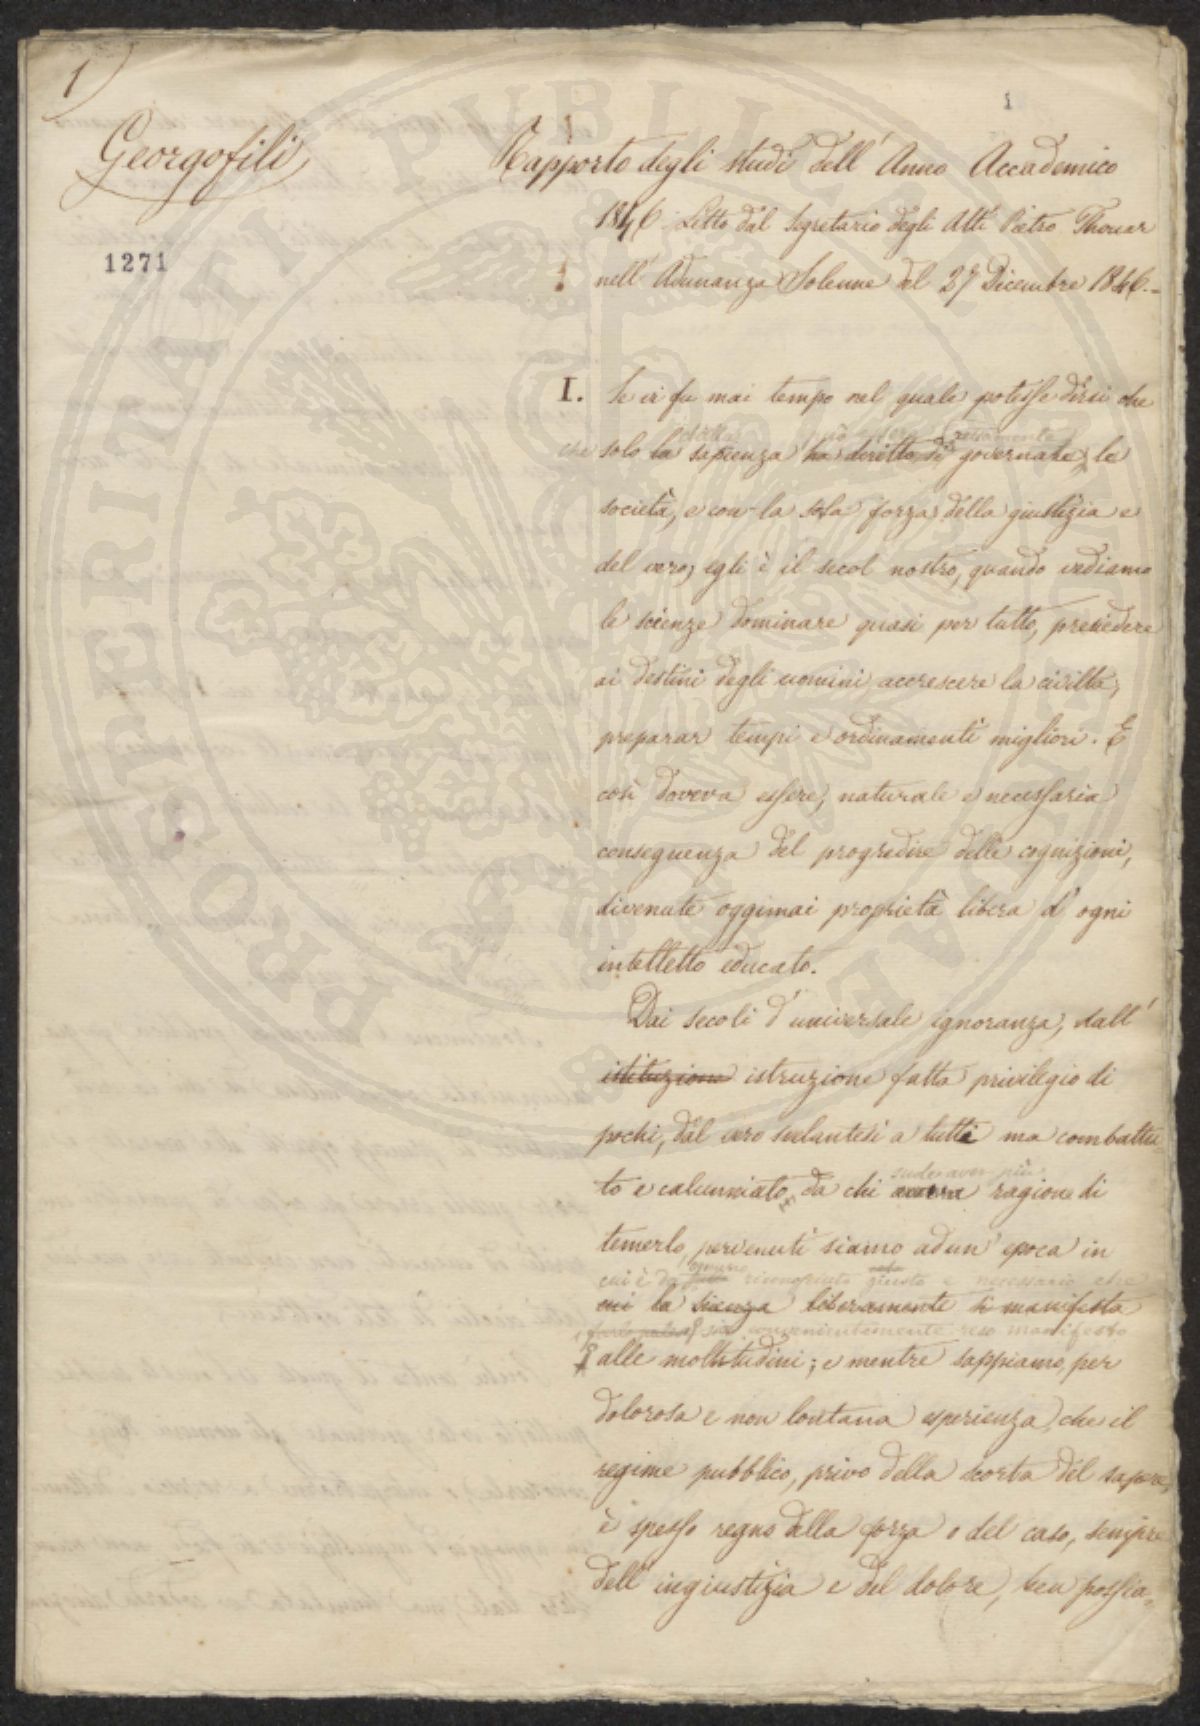 1
1
Georgofili
1271
Rapporto degli studi dell'Anno Accademico
1846. Letto dal Segretario degli Atti Pietro Thouar
nell'Adunanza Solenne del 27 Dicembre 1846.
I. Se vi fu mai tempo nel quale potesse dirsi che
dalla può essere rettamente
che solo la sapienza ha diritto di governare le
società, e con la sola forza della giustizia e
del vero, egli è il secol nostro, quando vediamo
le scienze dominare quasi per tutto, presiedere
ai destini degli uomini, accrescere la civiltà,
preparar tempi e ordinamenti migliori. E
così doveva essere, naturale e necessaria
conseguenza del progredire delle cognizioni,
divenute oggimai proprietà libera d'ogni
intelletto educato.
Dai secoli d'universale ignoranza, dall'
istituzione istruzione fatta privilegio di
pochi, dal vero svelantesi a tutti ma combattu-
suole aver più
to e calunniato da chi aveva ragione di
temerlo, pervenuti siamo ad un'epoca in
cui è da ognuno riconosciuto giusto e necessario che
cui la scienza liberamente si manifesta
sia convenientemente reso manifesto
alle moltitudini; e mentre sappiamo per
dolorosa e non lontana esperienza, che il
regime pubblico, privo della scorta del sapere,
è spesso regno della forza o del caso, sempre
dell'ingiustizia e del dolore, ben possia-
PUBLICAE
PROSPERITATI
AUGENDAE